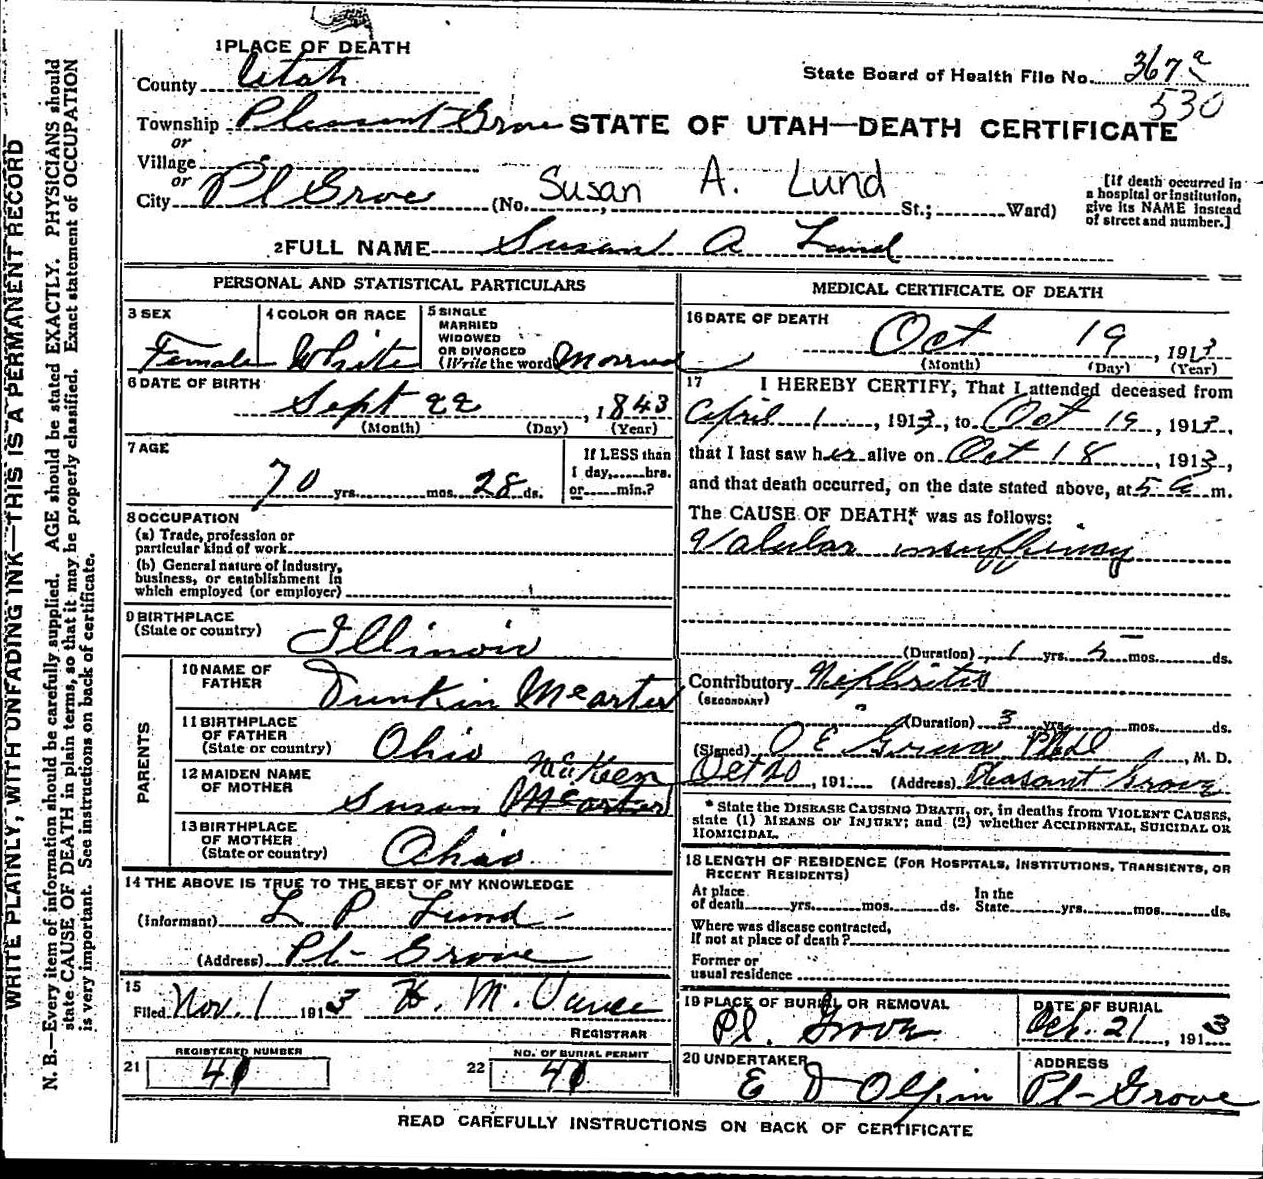 WRITE PLAINLY, WITH UNFADING INK—THIS IS A PERMANENT RECORD
N. B.—Every item of information should be carefully supplied. AGE should be stated EXACTLY. PHYSICIANS should
state CAUSE OF DEATH in plain terms, so that it may be properly classified. Exact statement of OCCUPATION
is very important. See instructions on back of certificate.
1 PLACE OF DEATH
County Utah
State Board of Health File No. 367 a
530
Township Pleasant Grove
STATE OF UTAH—DEATH CERTIFICATE
or
Village
or
City Pl Grove (No. Susan A. Lund St.; Ward)
[If death occurred in
a hospital or institution,
give its NAME instead
of street and number.]
2 FULL NAME Susan A Lund
PERSONAL AND STATISTICAL PARTICULARS
3 SEX Female
4 COLOR OR RACE White
5 SINGLE
MARRIED
WIDOWED
OR DIVORCED
(Write the word) Married
6 DATE OF BIRTH
Sept 22, 1843
(Month) (Day) (Year)
7 AGE
70 yrs. mos. 28 ds.
If LESS than
1 day, hrs.
or min.?
8 OCCUPATION
(a) Trade, profession or
particular kind of work
(b) General nature of industry,
business, or establishment in
which employed (or employer)
9 BIRTHPLACE
(State or country) Illinois
PARENTS
10 NAME OF
FATHER Dunkin McArter
11 BIRTHPLACE
OF FATHER
(State or country) Ohio
12 MAIDEN NAME
OF MOTHER Susan McArter McKeen
13 BIRTHPLACE
OF MOTHER
(State or country) Ohio
14 THE ABOVE IS TRUE TO THE BEST OF MY KNOWLEDGE
(Informant) L P Lund
(Address) Pl- Grove
15
Filed Nov. 1 1913 M. Vance
REGISTRAR
21 REGISTERED NUMBER
22 NO. OF BURIAL PERMIT
MEDICAL CERTIFICATE OF DEATH
16 DATE OF DEATH
Oct 19, 1913
(Month) (Day) (Year)
17 I HEREBY CERTIFY, That I attended deceased from
April 1, 1913, to Oct 19, 1913,
that I last saw her alive on Oct 18, 1913,
and that death occurred, on the date stated above, at 5 a m.
The CAUSE OF DEATH* was as follows:
Valvular insufficiency
(Duration) 1 yrs. 5 mos. ds.
Contributory Nephritis
(SECONDARY)
(Duration) 3 yrs. mos. ds.
(Signed) O E , M. D.
Oct 20, 191 (Address) Pleasant Grove
* State the DISEASE CAUSING DEATH, or, in deaths from VIOLENT CAUSES,
state (1) MEANS OF INJURY; and (2) whether ACCIDENTAL, SUICIDAL OR
HOMICIDAL.
18 LENGTH OF RESIDENCE (FOR HOSPITALS, INSTITUTIONS, TRANSIENTS, OR
RECENT RESIDENTS)
At place
of death yrs. mos. ds.
In the
State yrs. mos. ds.
Where was disease contracted,
If not at place of death?
Former or
usual residence
19 PLACE OF BURIAL OR REMOVAL
Pl. Grove
DATE OF BURIAL
Oct. 21, 1913
20 UNDERTAKER
E D Olpin
ADDRESS
Pl- Grove
READ CAREFULLY INSTRUCTIONS ON BACK OF CERTIFICATE